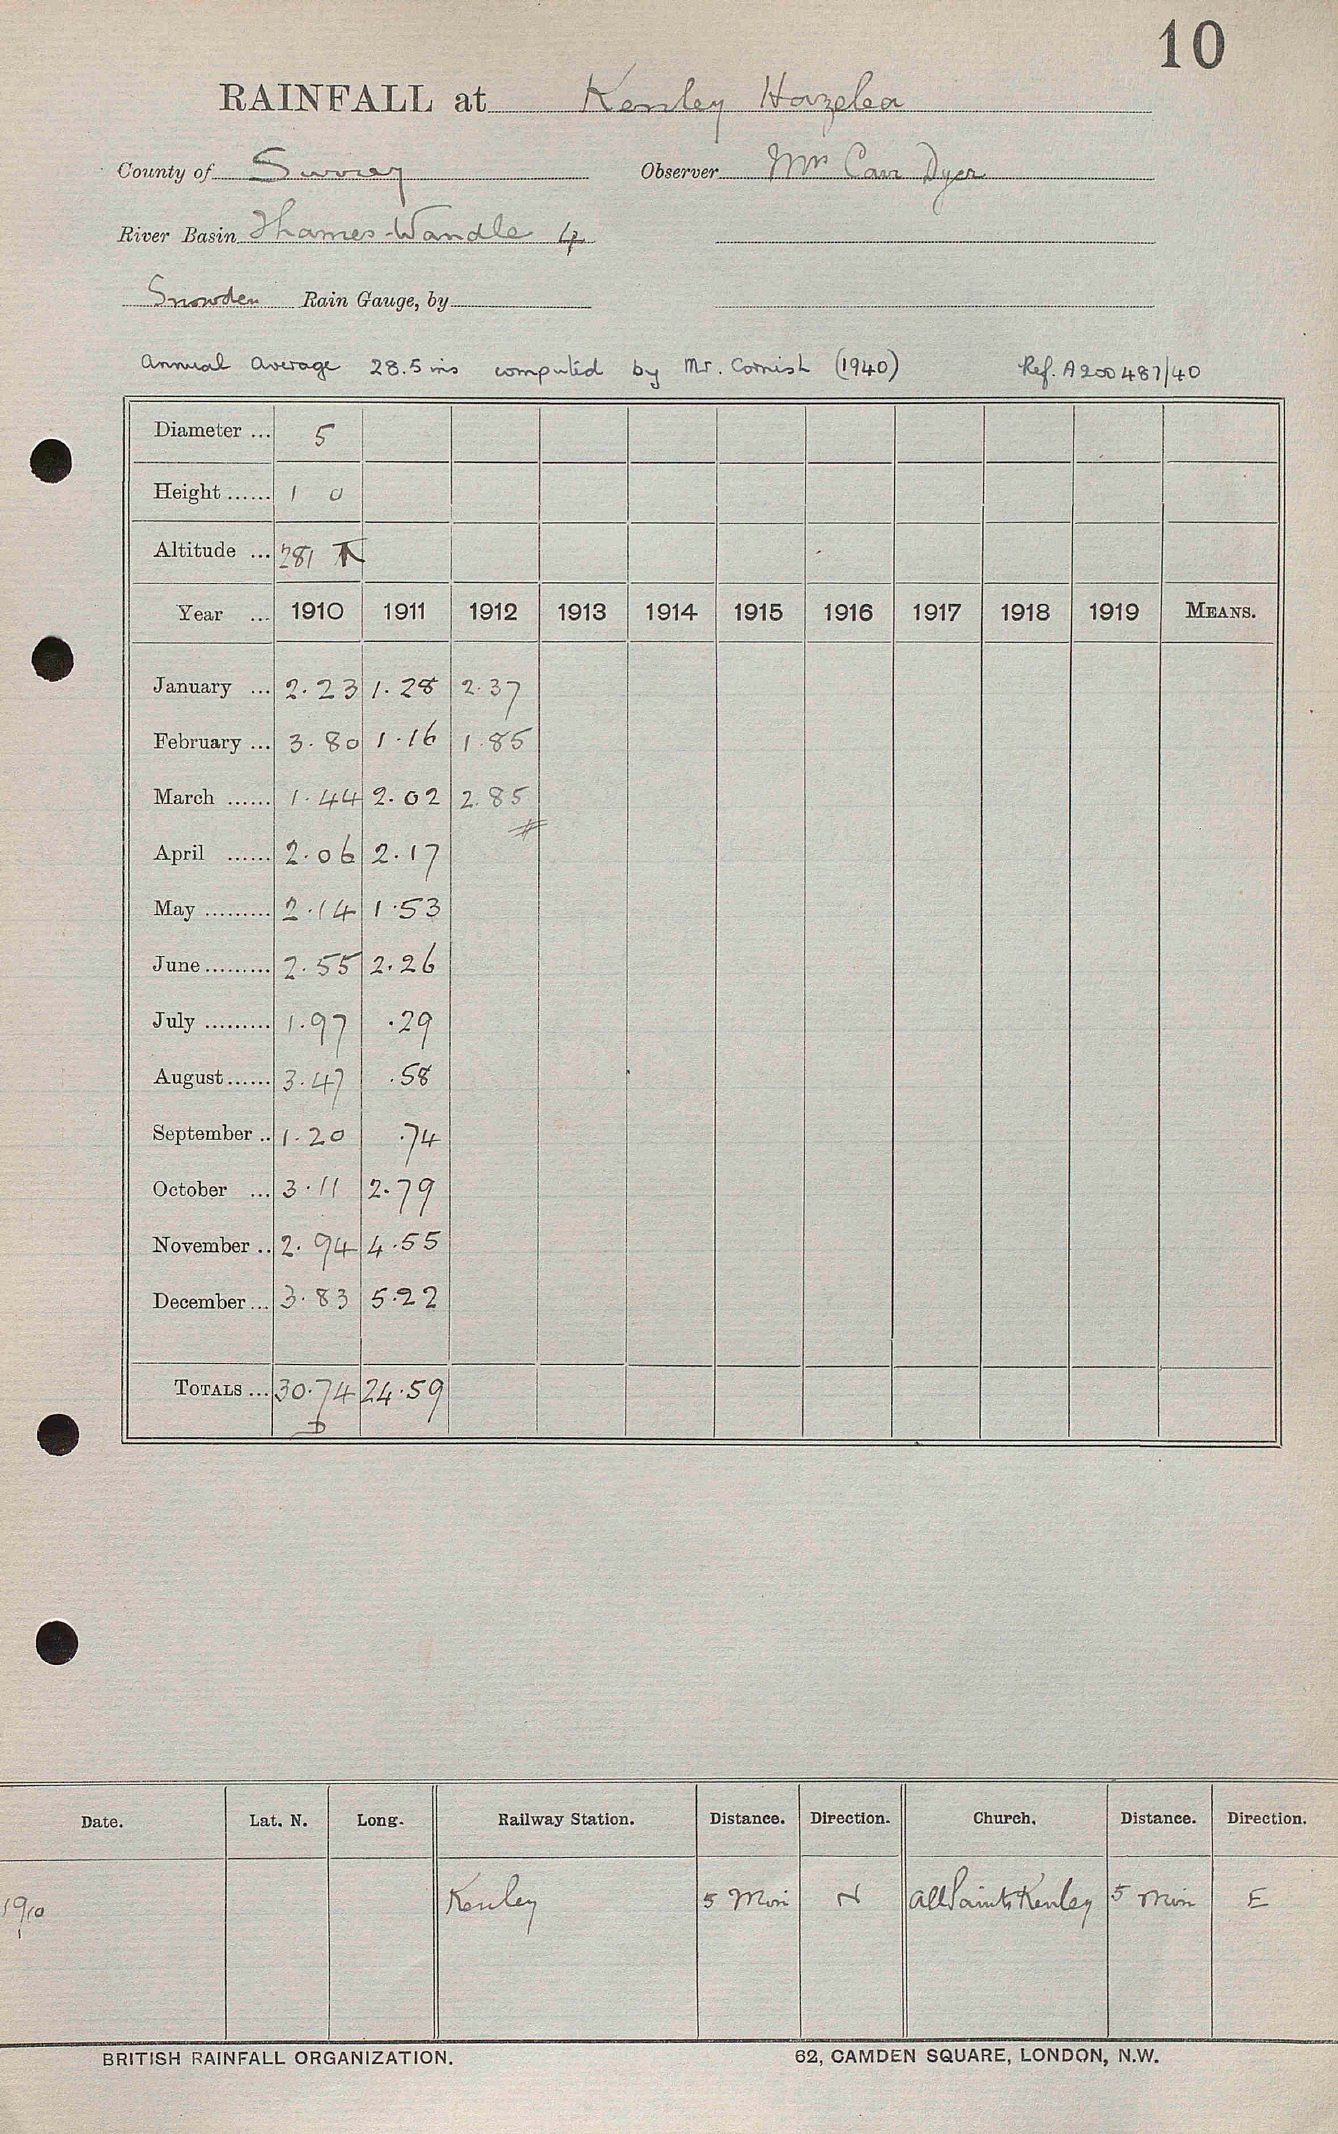 10
RAINFALL at Kenley Hazelea
County of Surrey Observer Mrs Carr Dyer
River Basin Thames-Wandle 4
Snowden Rain Gauge, by
Annual Average 28.5 ins computed by Mr. Cornish (1940) Ref. A200487/40
Diameter ... 5
Height ...... 1 0
Altitude ... 281 T
Year ... 1910 1911 1912 1913 1914 1915 1916 1917 1918 1919 MEANS.
January ... 2.23 1.28 2.37
February ... 3.80 1.16 1.85
March ...... 1.44 2.02 2.85
April ...... 2.06 2.17
May ......... 2.14 1.53
June ......... 2.55 2.26
July ......... 1.97 .29
August ...... 3.47 .58
September .. 1.20 .74
October ... 3.11 2.79
November .. 2.94 4.55
December ... 3.83 5.22
TOTALS ... 30.74 24.59
D
Date. Lat. N. Long. Railway Station. Distance. Direction. Church. Distance. Direction.
1910 Kenley 5 Min N All Saints Kenley 5 Min E
BRITISH RAINFALL ORGANIZATION. 62, CAMDEN SQUARE, LONDON, N.W.